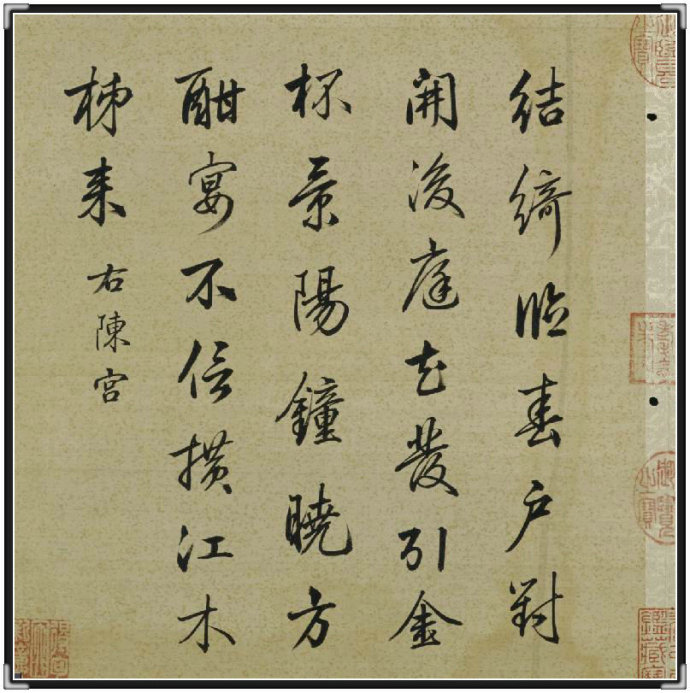 結綺臨春戶對
開後庭花發引金
杯景陽鐘曉方
酣宴不信橫江木
柹来
右陳宮